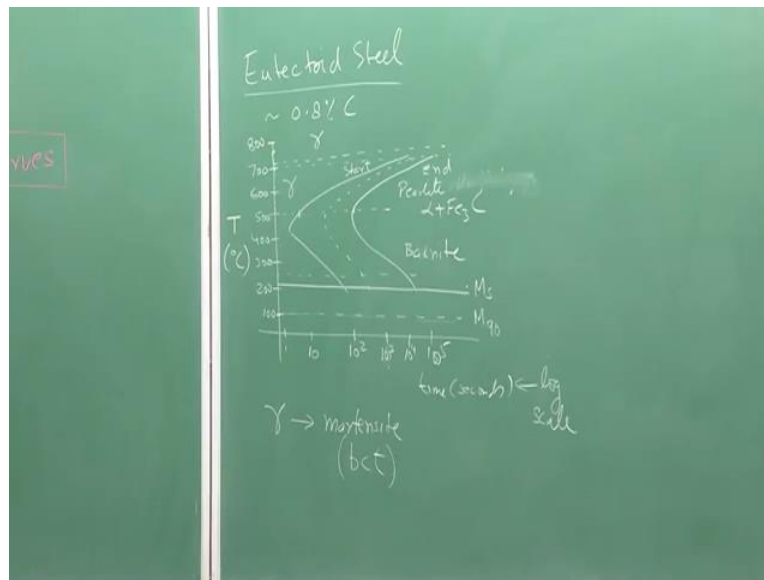 Eutectoid Steel
~ 0.8% C
γ
800
700
600
500
400
300
200
100
T
(°C)
γ
start
end
Pearlite
α+Fe3C
Bainite
Ms
M90
1 10 10² 10³ 10⁴ 10⁵
time (seconds) ← log
scale
γ → martensite
(bct)
rves